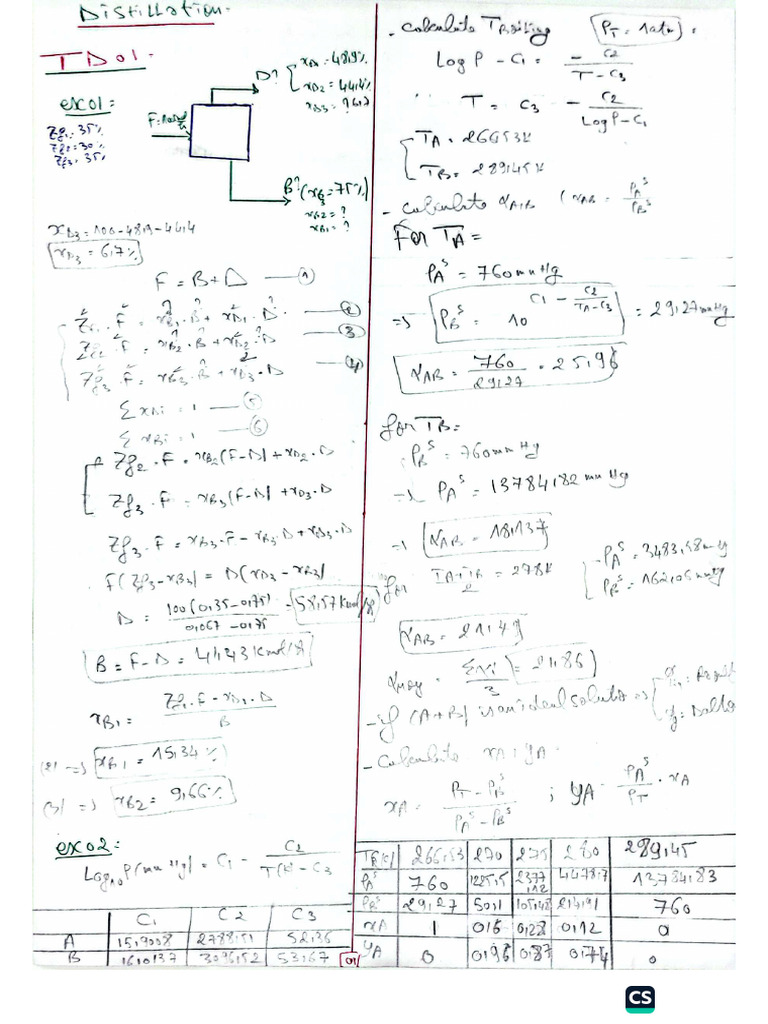 Distillation.
TD01.
exo1:
Zf1 = 35%
Zf2 = 30%
Zf3 = 35%
D? { xD1 = 48,9%
xD2 = 44,4%
xD3 = ?
B? (xB3 = 75%)
xB2 = ?
xB1 = ?
xD3 = 100 - 48,9 - 44,4
xD3 = 6,7%
F = B + D — (1)
Zf1 . F = xB1 . B + xD1 . D — (2)
Zf2 . F = xB2 . B + xD2 . D — (3)
Zf3 . F = xB3 . B + xD3 . D — (4)
Σ xDi = 1 — (5)
Σ xBi = 1 — (6)
Zf2 . F = xB2 (F-D) + xD2 . D
Zf3 . F = xB3 (F-D) + xD3 . D
Zf3 . F = xB3 . F - xB3 . D + xD3 . D
F (Zf3 - xB3) = D (xD3 - xB3)
D = 100 (0,35 - 0,75) / 0,067 - 0,75 = 58,57 Kmol/h
B = F - D = 41,43 Kmol/h
xB1 = Zf1 . F - xD1 . D / B
(2) => xB1 = 15,34 %
(3) => xB2 = 9,66 %
exo2:
Log10 P(mmHg) = C1 - C2 / T(K) - C3
C1 C2 C3
A 15,9008 2788,51 52,36
B 16,0137 3096,52 53,67
01
- calculate TBoiling (PT = 1atm) :
Log P - C1 = - C2 / T - C3
T = C3 - C2 / Log P - C1
TA = 266,53K
TB = 289,45K
- calculate αAB (αAB = PAs / PBs
For TA =
PAs = 760 mmHg
=> PBs = 10 C1 - C2 / TA - C3 = 29,27 mmHg
αAB = 760 / 29,27 = 25,96
for TB =
PBs = 760 mmHg
=> PAs = 13784,82 mmHg
=> αAB = 18,137
for TA+TB / 2 = 278K
PAs = 3483,58 mmHg
PBs = 162,05 mmHg
αAB = 21,49
αmoy = Σαi / 3 = 21,86
- if (A+B) is an ideal solution =>
- Calculate xA ; yA.
xA = PT - PBs / PAs - PBs ; yA = PAs / PT . xA
T(K) 266,53 270 275 280 289,45
PAs 760 1225,5 2377,12 4478,7 13784,83
PBs 29,27 50,1 105,48 214,91 760
xA 1 0,6 0,28 0,12 0
yA 0 0,96 0,87 0,74 0
CS